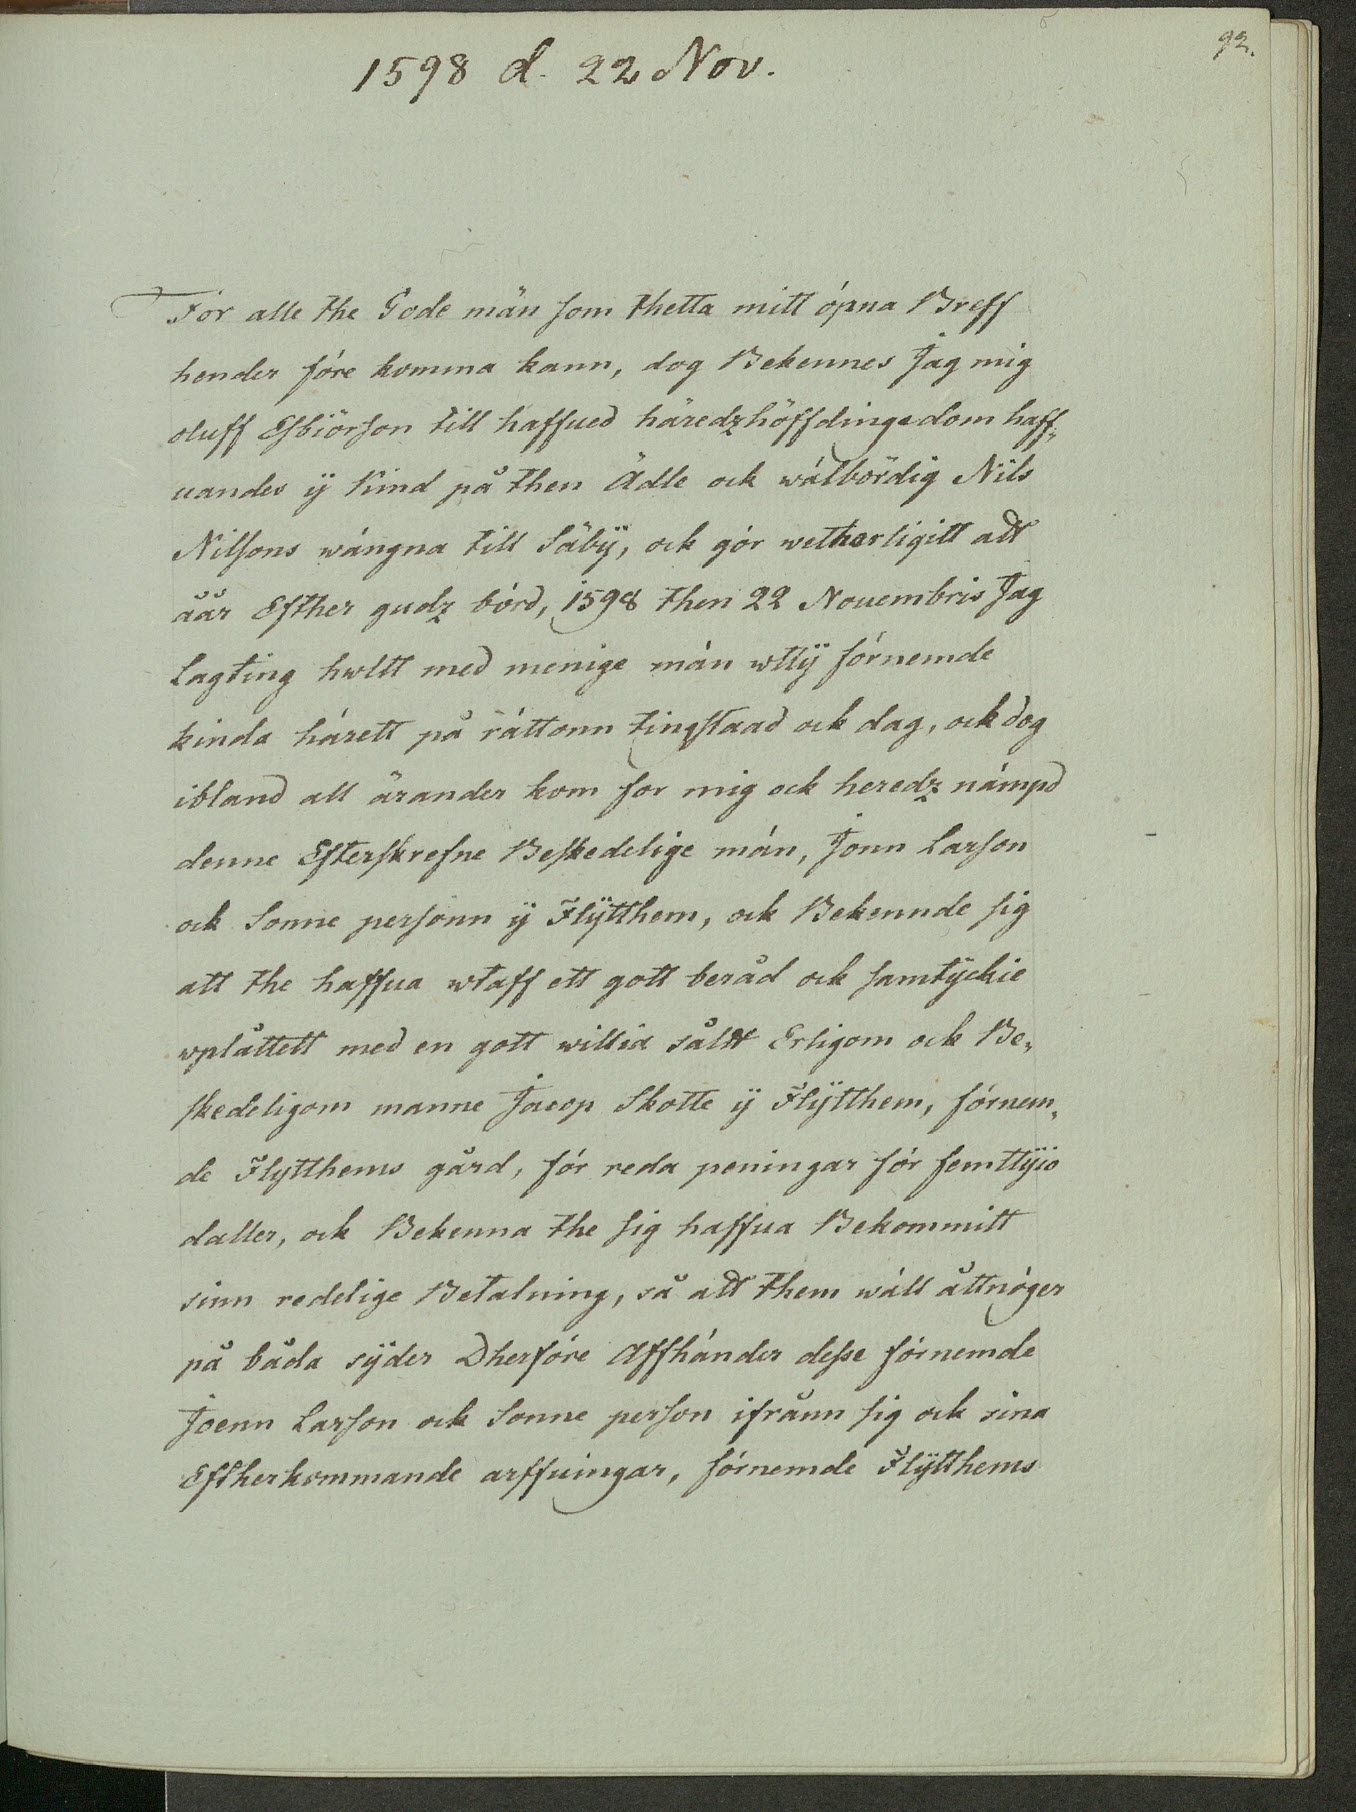 92.
1598 d. 22 Nov.
För alle the Gode män som thetta mitt öpna Breff
hender före komma kann, dog Bekennes Jag mig
oluff Esbiörson till haffued häredzhöffdingedom haff-
uandes ÿ Kind på then Ädle ock wälbördig Nils
Nilsons wängna till Säbÿ, ock gör wetherligitt adt
åår Efther gudz börd, 1598 then 22 Nouembris Jag
Lagting hwltt med menige män wttÿ förnemde
kinda härett på rättonn tingstaad ock dag, ock dog
ibland all ärander kom for mig ock heredz nämpd
denne Efterskrefne Beskedelige män, Jonn Larson
ock Sonne personn ÿ Flÿtthem, ock Bekennde sig
att the haffua wtaff ett gott beråd ock samtÿckie
wplåttett med en gott willia såldt Erligom ock Be-
skedeligom manne Jacop Skotte ÿ Flÿtthem, förnem-
de Flytthems gård, för reda peningar för femttÿio
daller, ock Bekenna the sig haffua Bekommitt
sinn redelige Betalning, så adt them wäll åttnöger
på båda sÿder Dherföre Affhänder desse förnemde
Joenn Larson ock Sonne person ifrånn sig ock sina
Eftherkommande arffuingar, förnemde Flÿtthems